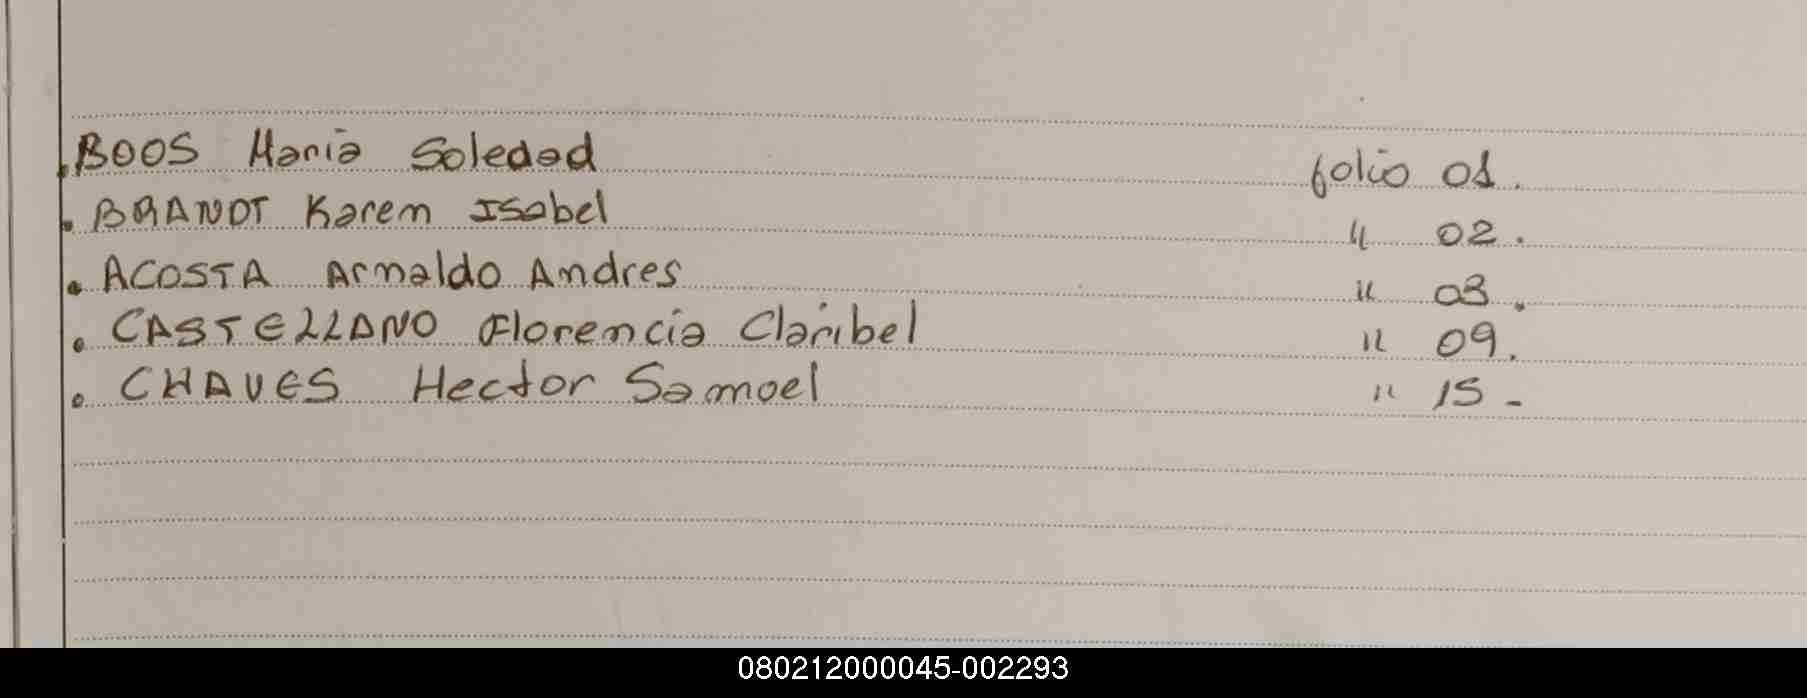 . BOOS Maria Soledad folio 01.
. BRANDT Karem Isabel " 02.
. ACOSTA Arnaldo Andres " 03.
. CASTELLANO Florencia Claribel " 09.
. CHAVES Hector Samoel " 15 -
080212000045-002293